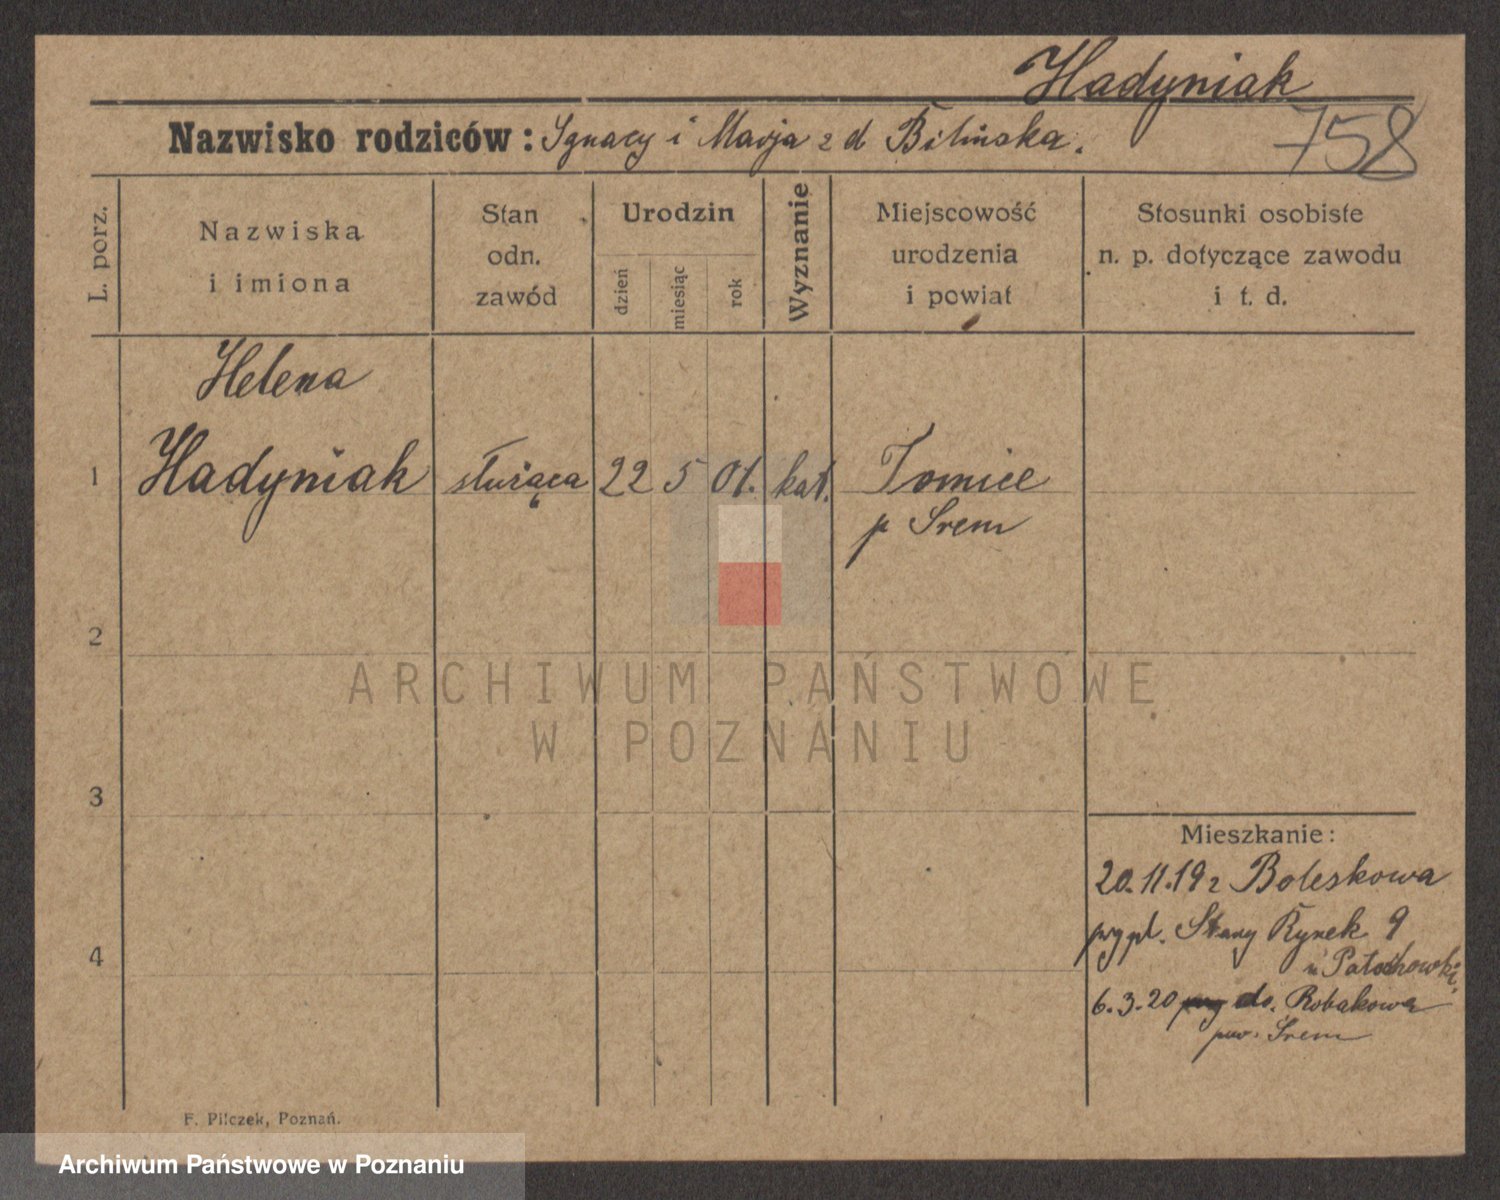 Hadyniak
Nazwisko rodziców: Ignacy i Marja z d Bilińska.
758
L. porz.
Nazwiska
i imiona
Stan
odn.
zawód
Urodzin
dzień
miesiąc
rok
Wyznanie
Miejscowość
urodzenia
i powiat
Stosunki osobiste
n. p. dotyczące zawodu
i t. d.
Helena
1 Hadyniak służąca 22 5 01. kat. Tomice
p Śrem
2
3
4
ARCHIWUM PAŃSTWOWE
W POZNANIU
Mieszkanie:
20.11.19 z Boleskowa
Stary Rynek 9
6.3.20 do. Robakowa
pow. Śrem
F. Pilczek, Poznań.
Archiwum Państwowe w Poznaniu